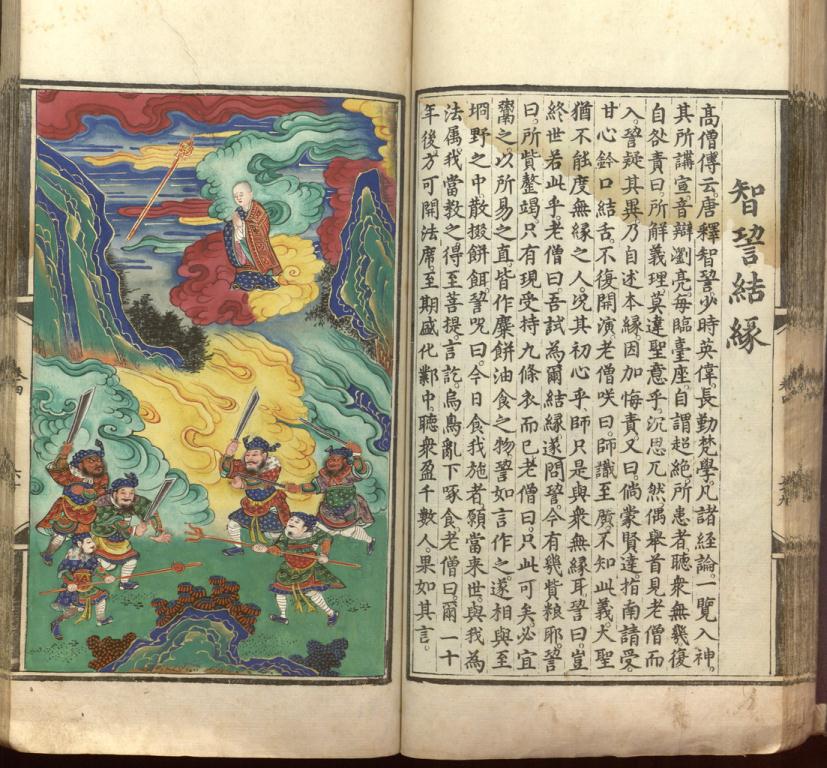 智䛒結緣
高僧傳云唐釋智䛒少時英偉長勤梵學凡諸經論一覽入神
其所講宣音辯瀏亮每臨臺座自謂超絕所患者聽衆無幾復
自咎責曰所解義理莫違聖意乎沉思兀然偶舉首見老僧而
入䛒疑其異乃自述本緣因加悔責又曰倘蒙賢達指南請受
甘心鈐口結舌不復開演老僧咲曰師識至廣不知此義大聖
猶不能度無緣之人况其初心乎師只是與衆無緣耳䛒曰豈
終世若此乎老僧曰吾試為爾結緣遂問䛒今有幾貲粮耶䛒
曰所貲罄竭只有現受持九條衣而已老僧曰只此可矣必宜
鬻之以所易之直皆作糜餅油食之物䛒如言作之遂相與至
坰野之中散掇餅餌䛒咒曰今日食我施者願當來世與我為
法属我當教之得至菩提言訖烏鳥亂下啄食老僧曰爾一十
年後方可開法席至期盛化鄴中聽衆盈千數人果如其言